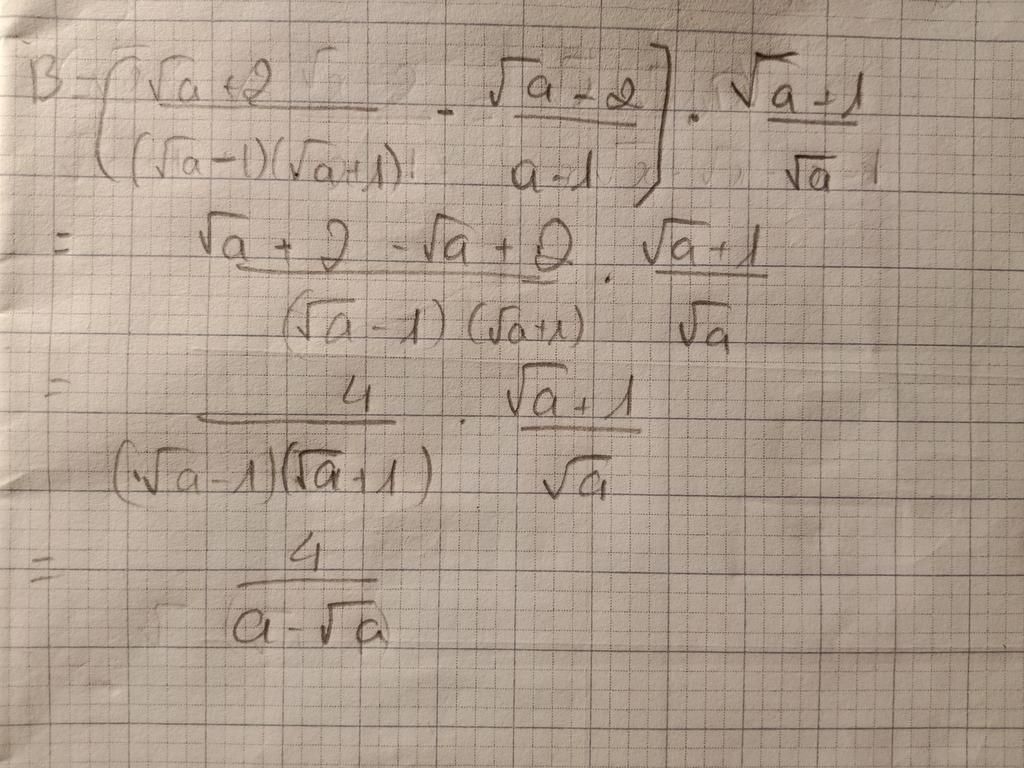 B = [ (√a + 2)/((√a - 1)(√a + 1)) - (√a - 2)/(a - 1) ] . (√a + 1)/√a
= (√a + 2 - √a + 2)/((√a - 1)(√a + 1)) . (√a + 1)/√a
= 4/((√a - 1)(√a + 1)) . (√a + 1)/√a
= 4/(a - √a)